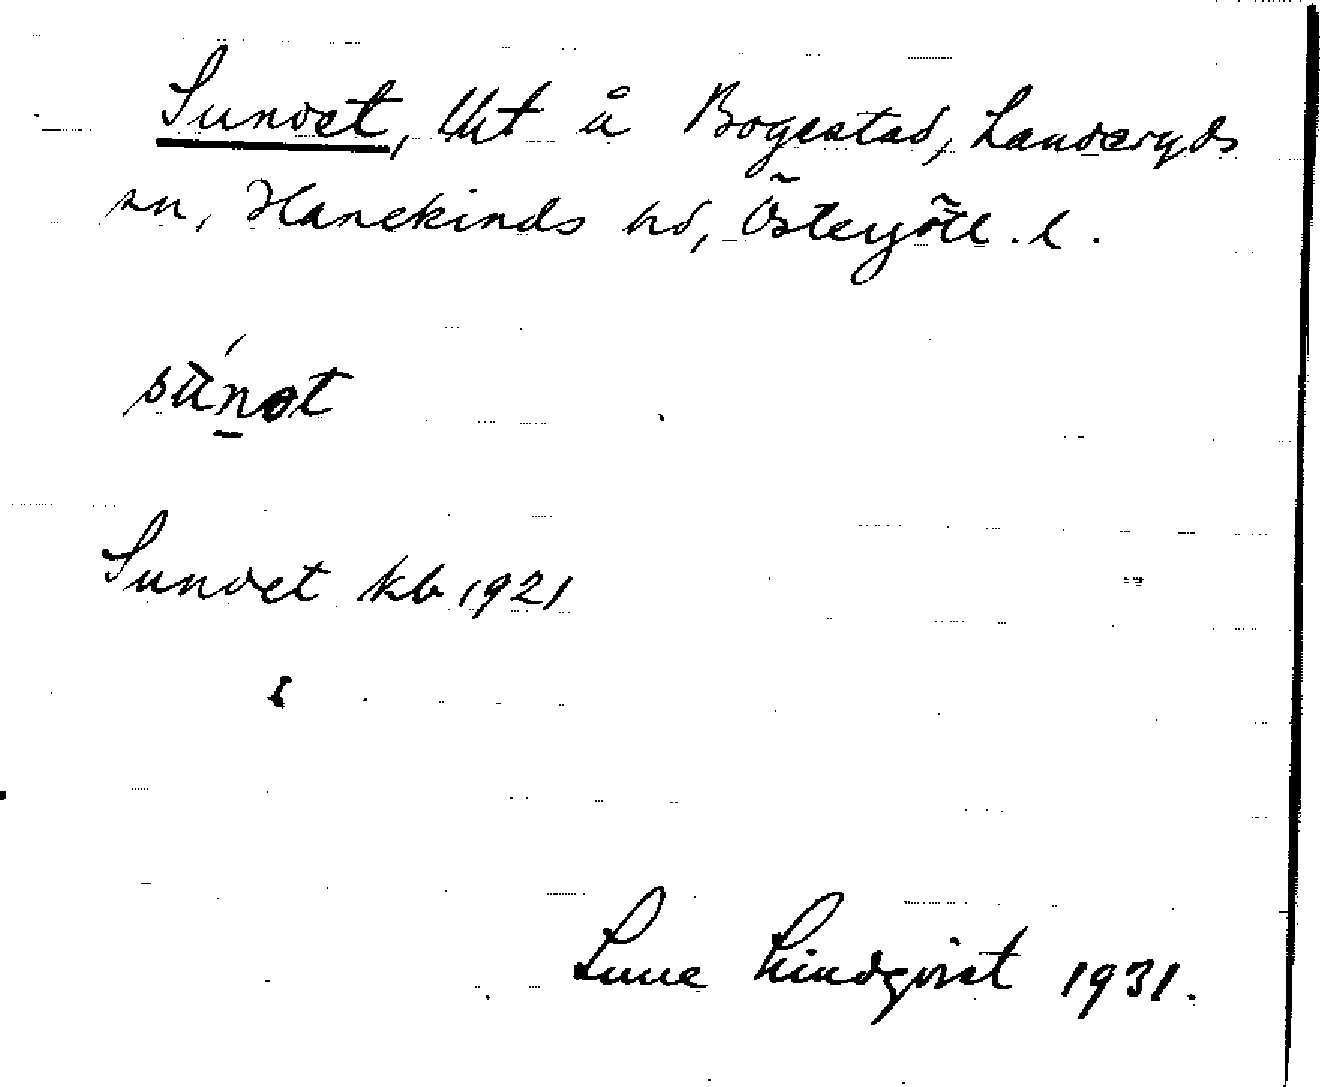 Sundet, lht å Bogestad, Landeryds
sn, Hanekinds hd, Östergötl. l.
sùn̠ət
Sundet kb 1921
Sune Lindqvist 1931.